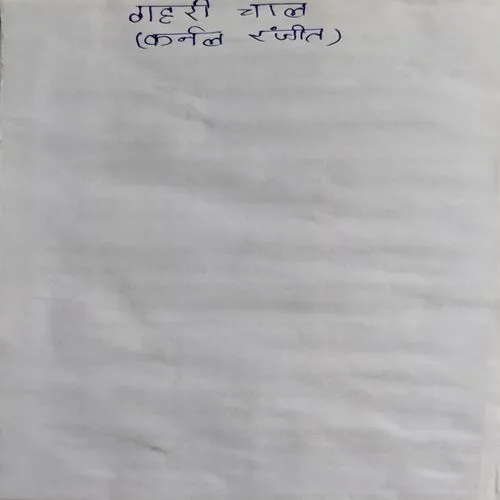 गहरी चाल
(कर्नल रंजीत)